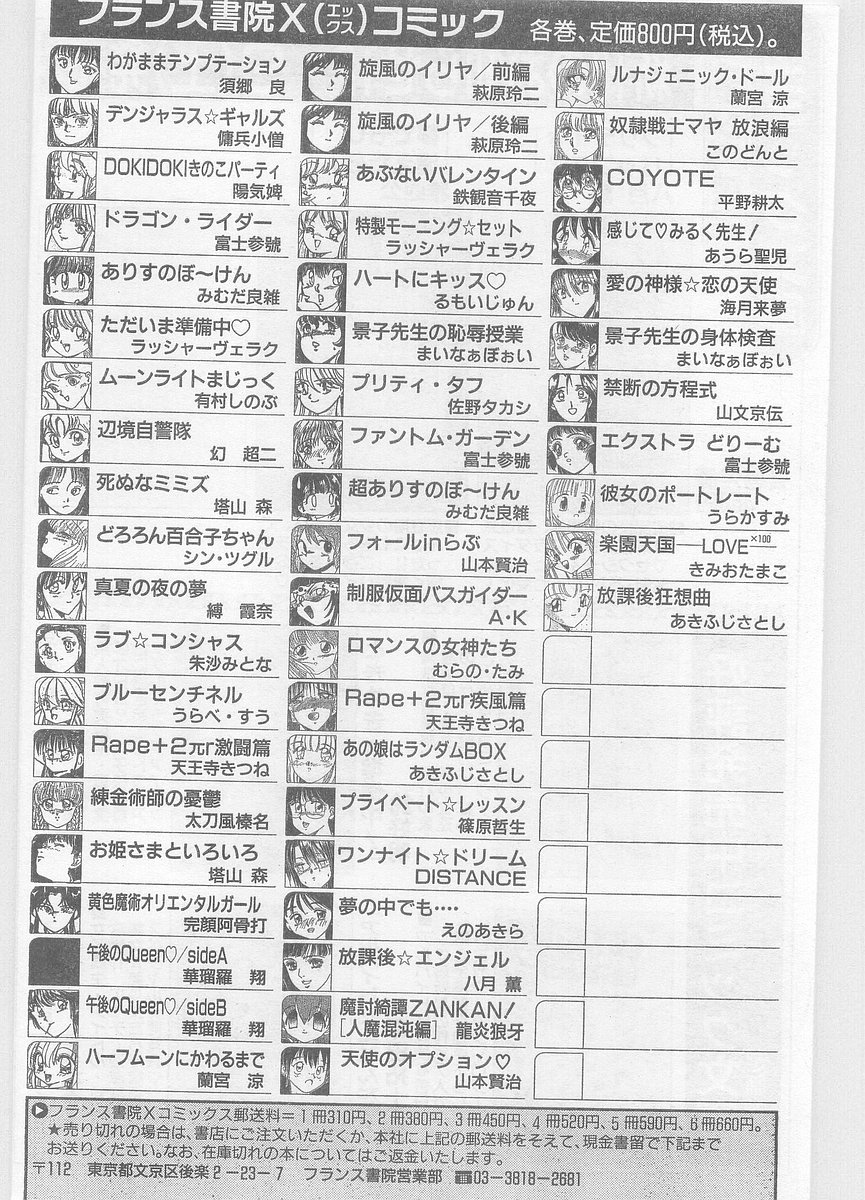 フランス書院X(エックス)コミック 各巻、定価800円(税込)。
わがままテンプテーション
須郷 良
デンジャラス☆ギャルズ
傭兵小僧
DOKIDOKIきのこパーティ
陽気婢
ドラゴン・ライダー
富士参號
ありすのぼ〜けん
みむだ良雑
ただいま準備中♡
ラッシャーヴェラク
ムーンライトまじっく
有村しのぶ
辺境自警隊
幻 超二
死ぬなミミズ
塔山 森
どろろん百合子ちゃん
シン・ツグル
真夏の夜の夢
縛 霞奈
ラブ☆コンシャス
朱沙みとな
ブルーセンチネル
うらべ・すう
Rape+2πr激闘篇
天王寺きつね
錬金術師の憂鬱
太刀風榛名
お姫さまといろいろ
塔山 森
黄色魔術オリエンタルガール
完顔阿骨打
午後のQueen♡/sideA
華瑠羅 翔
午後のQueen♡/sideB
華瑠羅 翔
ハーフムーンにかわるまで
蘭宮 涼
旋風のイリヤ/前編
萩原玲二
旋風のイリヤ/後編
萩原玲二
あぶないバレンタイン
鉄観音千夜
特製モーニング☆セット
ラッシャーヴェラク
ハートにキッス♡
るもいじゅん
景子先生の恥辱授業
まいなぁぼぉい
プリティ・タフ
佐野タカシ
ファントム・ガーデン
富士参號
超ありすのぼ〜けん
みむだ良雑
フォールinらぶ
山本賢治
制服仮面バスガイダー
A・K
ロマンスの女神たち
むらの・たみ
Rape+2πr疾風篇
天王寺きつね
あの娘はランダムBOX
あきふじさとし
プライベート☆レッスン
篠原哲生
ワンナイト☆ドリーム
DISTANCE
夢の中でも‥‥
えのあきら
放課後☆エンジェル
八月 薫
魔討綺譚ZANKAN!
[人魔混沌編] 龍炎狼牙
天使のオプション♡
山本賢治
ルナジェニック・ドール
蘭宮 涼
奴隷戦士マヤ 放浪編
このどんと
COYOTE
平野耕太
感じて♡みるく先生!
あうら聖児
愛の神様☆恋の天使
海月来夢
景子先生の身体検査
まいなぁぼぉい
禁断の方程式
山文京伝
エクストラ どりーむ
富士参號
彼女のポートレート
うらかすみ
楽園天国――LOVE×100
きみおたまこ
放課後狂想曲
あきふじさとし
フランス書院Xコミックス郵送料=1冊310円、2冊380円、3冊450円、4冊520円、5冊590円、6冊660円。
★売り切れの場合は、書店にご注文いただくか、本社に上記の郵送料をそえて、現金書留で下記まで
お送りください。なお、在庫切れの本についてはご返金いたします。
〒112 東京都文京区後楽2-23-7 フランス書院営業部 ☎03-3818-2681